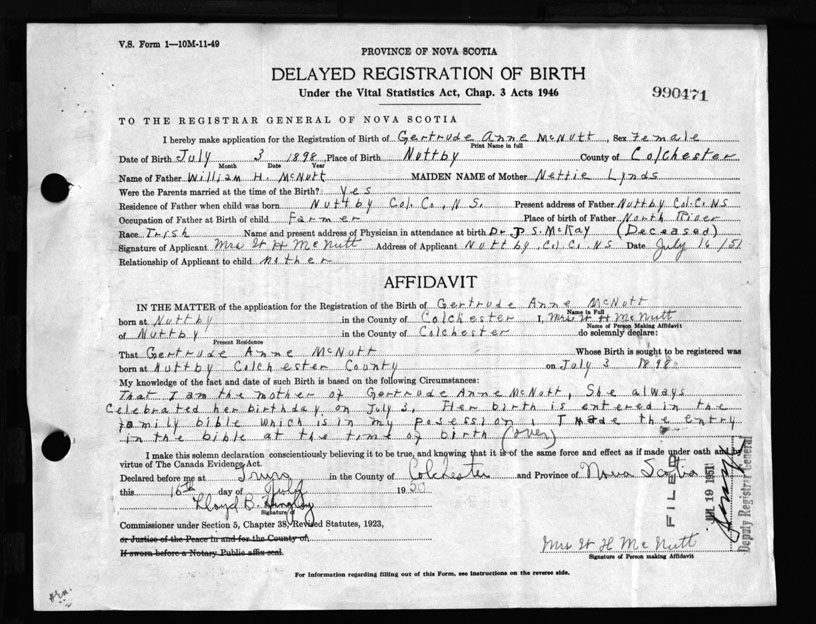 V.S. Form 1—10M-11-49
PROVINCE OF NOVA SCOTIA
DELAYED REGISTRATION OF BIRTH
Under the Vital Statistics Act, Chap. 3 Acts 1946
990471
TO THE REGISTRAR GENERAL OF NOVA SCOTIA
I hereby make application for the Registration of Birth of Gertrude Anne McNutt, Sex Female
Print Name in full
Date of Birth July 3 1898 Place of Birth Nuttby County of Colchester
Month Date Year
Name of Father William H. McNutt MAIDEN NAME of Mother Nettie Lynds
Were the Parents married at the time of the Birth? Yes
Residence of Father when child was born Nuttby Col. Co. N.S. Present address of Father Nuttby Col. C. NS
Occupation of Father at Birth of child Farmer Place of birth of Father North River
Race Irish Name and present address of Physician in attendance at birth Dr J S. McKay (Deceased)
Signature of Applicant Mrs W H McNutt Address of Applicant Nuttby Col. C. NS Date July 16/51
Relationship of Applicant to child Mother
AFFIDAVIT
IN THE MATTER of the application for the Registration of the Birth of Gertrude Anne McNutt
Name in Full
born at Nuttby in the County of Colchester I, Mrs W H McNutt
Name of Person Making Affidavit
of Nuttby in the County of Colchester do solemnly declare:
Present Residence
That Gertrude Anne McNutt Whose Birth is sought to be registered was
born at Nuttby Colchester County on July 3 1898
My knowledge of the fact and date of such Birth is based on the following Circumstances:
That I am the mother of Gertrude Anne McNutt, She always
Celebrated her birthday on July 3. Her birth is entered in the
family bible which is in my posession, I made the entry
in the bible at the time of birth (over)
I make this solemn declaration conscientiously believing it to be true, and knowing that it is of the same force and effect as if made under oath and by
virtue of The Canada Evidence Act.
Declared before me at Truro in the County of Colchester and Province of Nova Scotia
this 16th day of July 19
Lloyd B.
Signature of
Commissioner under Section 5, Chapter 38, Revised Statutes, 1923,
or Justice of the Peace in and for the County of
If sworn before a Notary Public affix seal.
Mrs W H McNutt
Signature of Person making Affidavit
FILED
JUL 19 1951
Deputy Registrar General
For Information regarding filling out of this Form, see instructions on the reverse side.